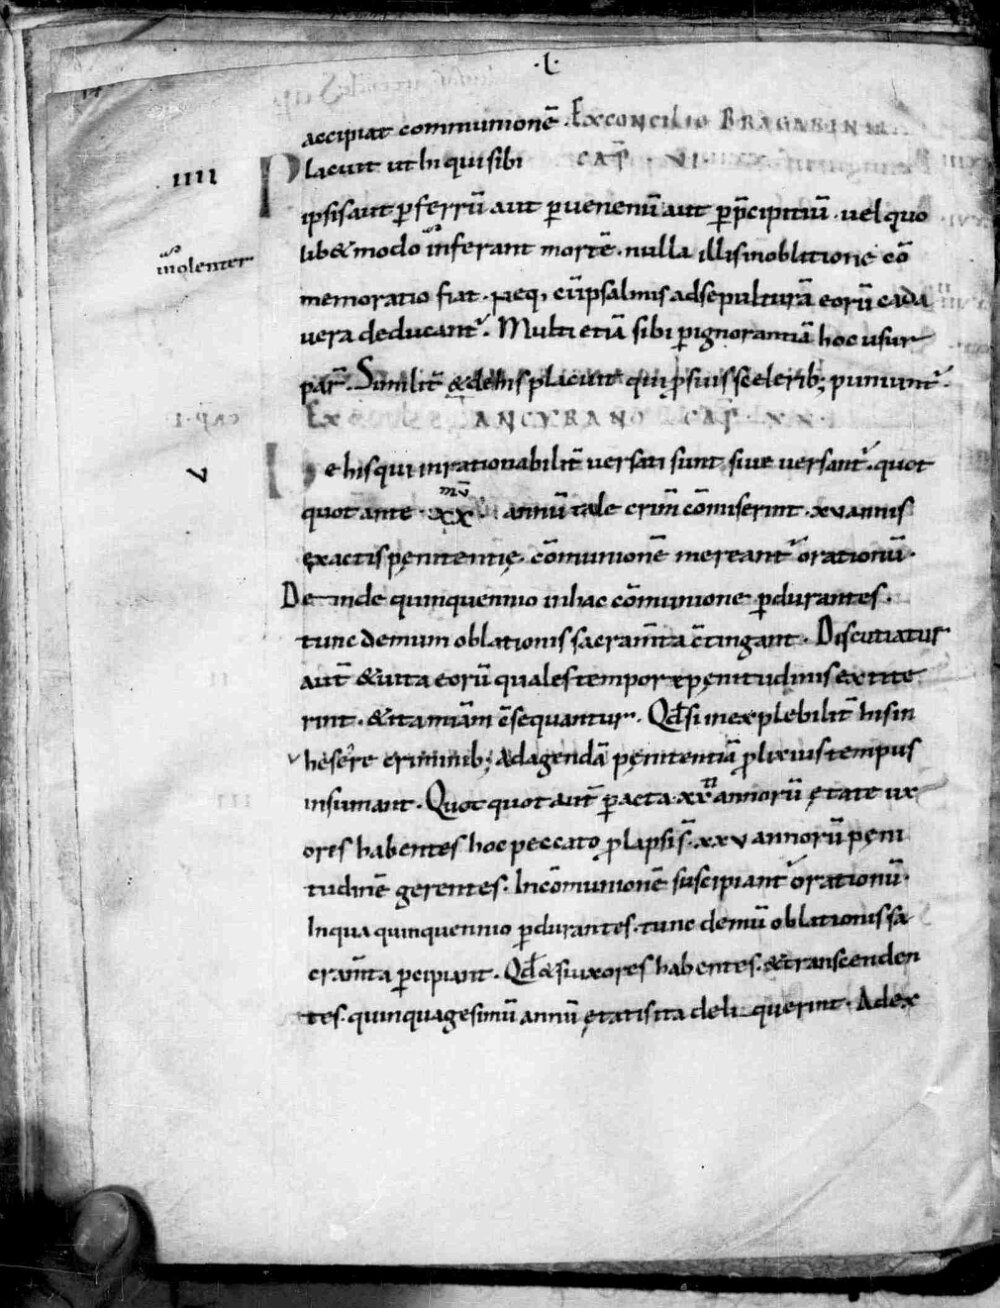 ·L·
accipiat communionē. Ex concilio Bragarens
IIII Placuit ut hi qui sibi CAP̄ · VI ·
ipsis aut ꝑ ferrū aut ꝑ uenenū aut ꝑ p̄cipitiū · uel quo
uiolenter lib& modo inferant mortē · nulla illis in oblatione cō
memoratio fiat · neq, cū psalmis ad sepulturā eorū cada
uera deducant̄. Multi etiā sibi ꝑ ignorantiā hoc usur
par̄. Similit̄ & de his placuit qui ꝓ suis scelerib; puniunt̄.
Ex ANCYRANO CAP̄ · XX · I
V De his qui inrationabilit̄ uersati sunt siue uersant̄ · quot
quot ante · XX · annū tale crim̄ cōmiserint · xv annis
exactis pęnitentię · cōmunionē mereant̄ orationū ·
Deinde quinquennio in hac cōmunione ꝑdurantes ·
tunc demum oblationis sacram̄ta c̄tingant · Discutiatur
aut̄ & uita eorū quales tempore pęnitudinis extite
rint · & ita miām c̄sequantur. Qd̄ si inexplebilit̄ his in
hesere criminib; ad agendā pęnitentiā ꝓlixius tempus
insumant · Quotquot aut̄ ꝑacta xx annorū ętate ux
ores habentes hoc peccato ꝓlapsi s̄ · xxv annorū pęni
tudinē gerentes · In cōmunionē suscipiant̄ orationū ·
In qua quinquennio ꝑdurantes · tunc demū oblationis sa
cram̄ta ꝑcipiant · Qd̄ & si uxores habentes · & transcenden
tes · quinquagesimū annū ętatis ita deliquerint · Ad ex